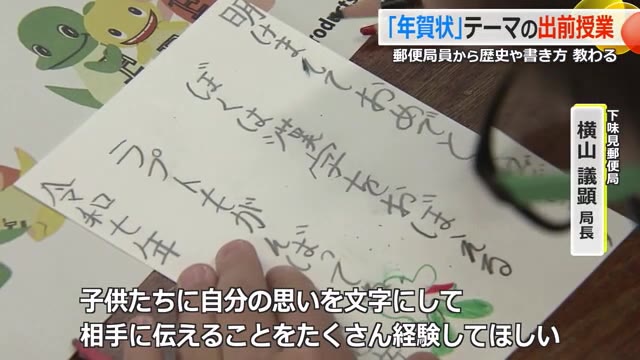 「年賀状」テーマの出前授業
郵便局員から歴史や書き方 教わる
下味見郵便局
横山 議顕 局長
roducts
明けましておめでと
ぼくは漢字をおぼえる
ラブ
もがんばって
令和七年
子供たちに自分の思いを文字にして
相手に伝えることをたくさん経験してほしい